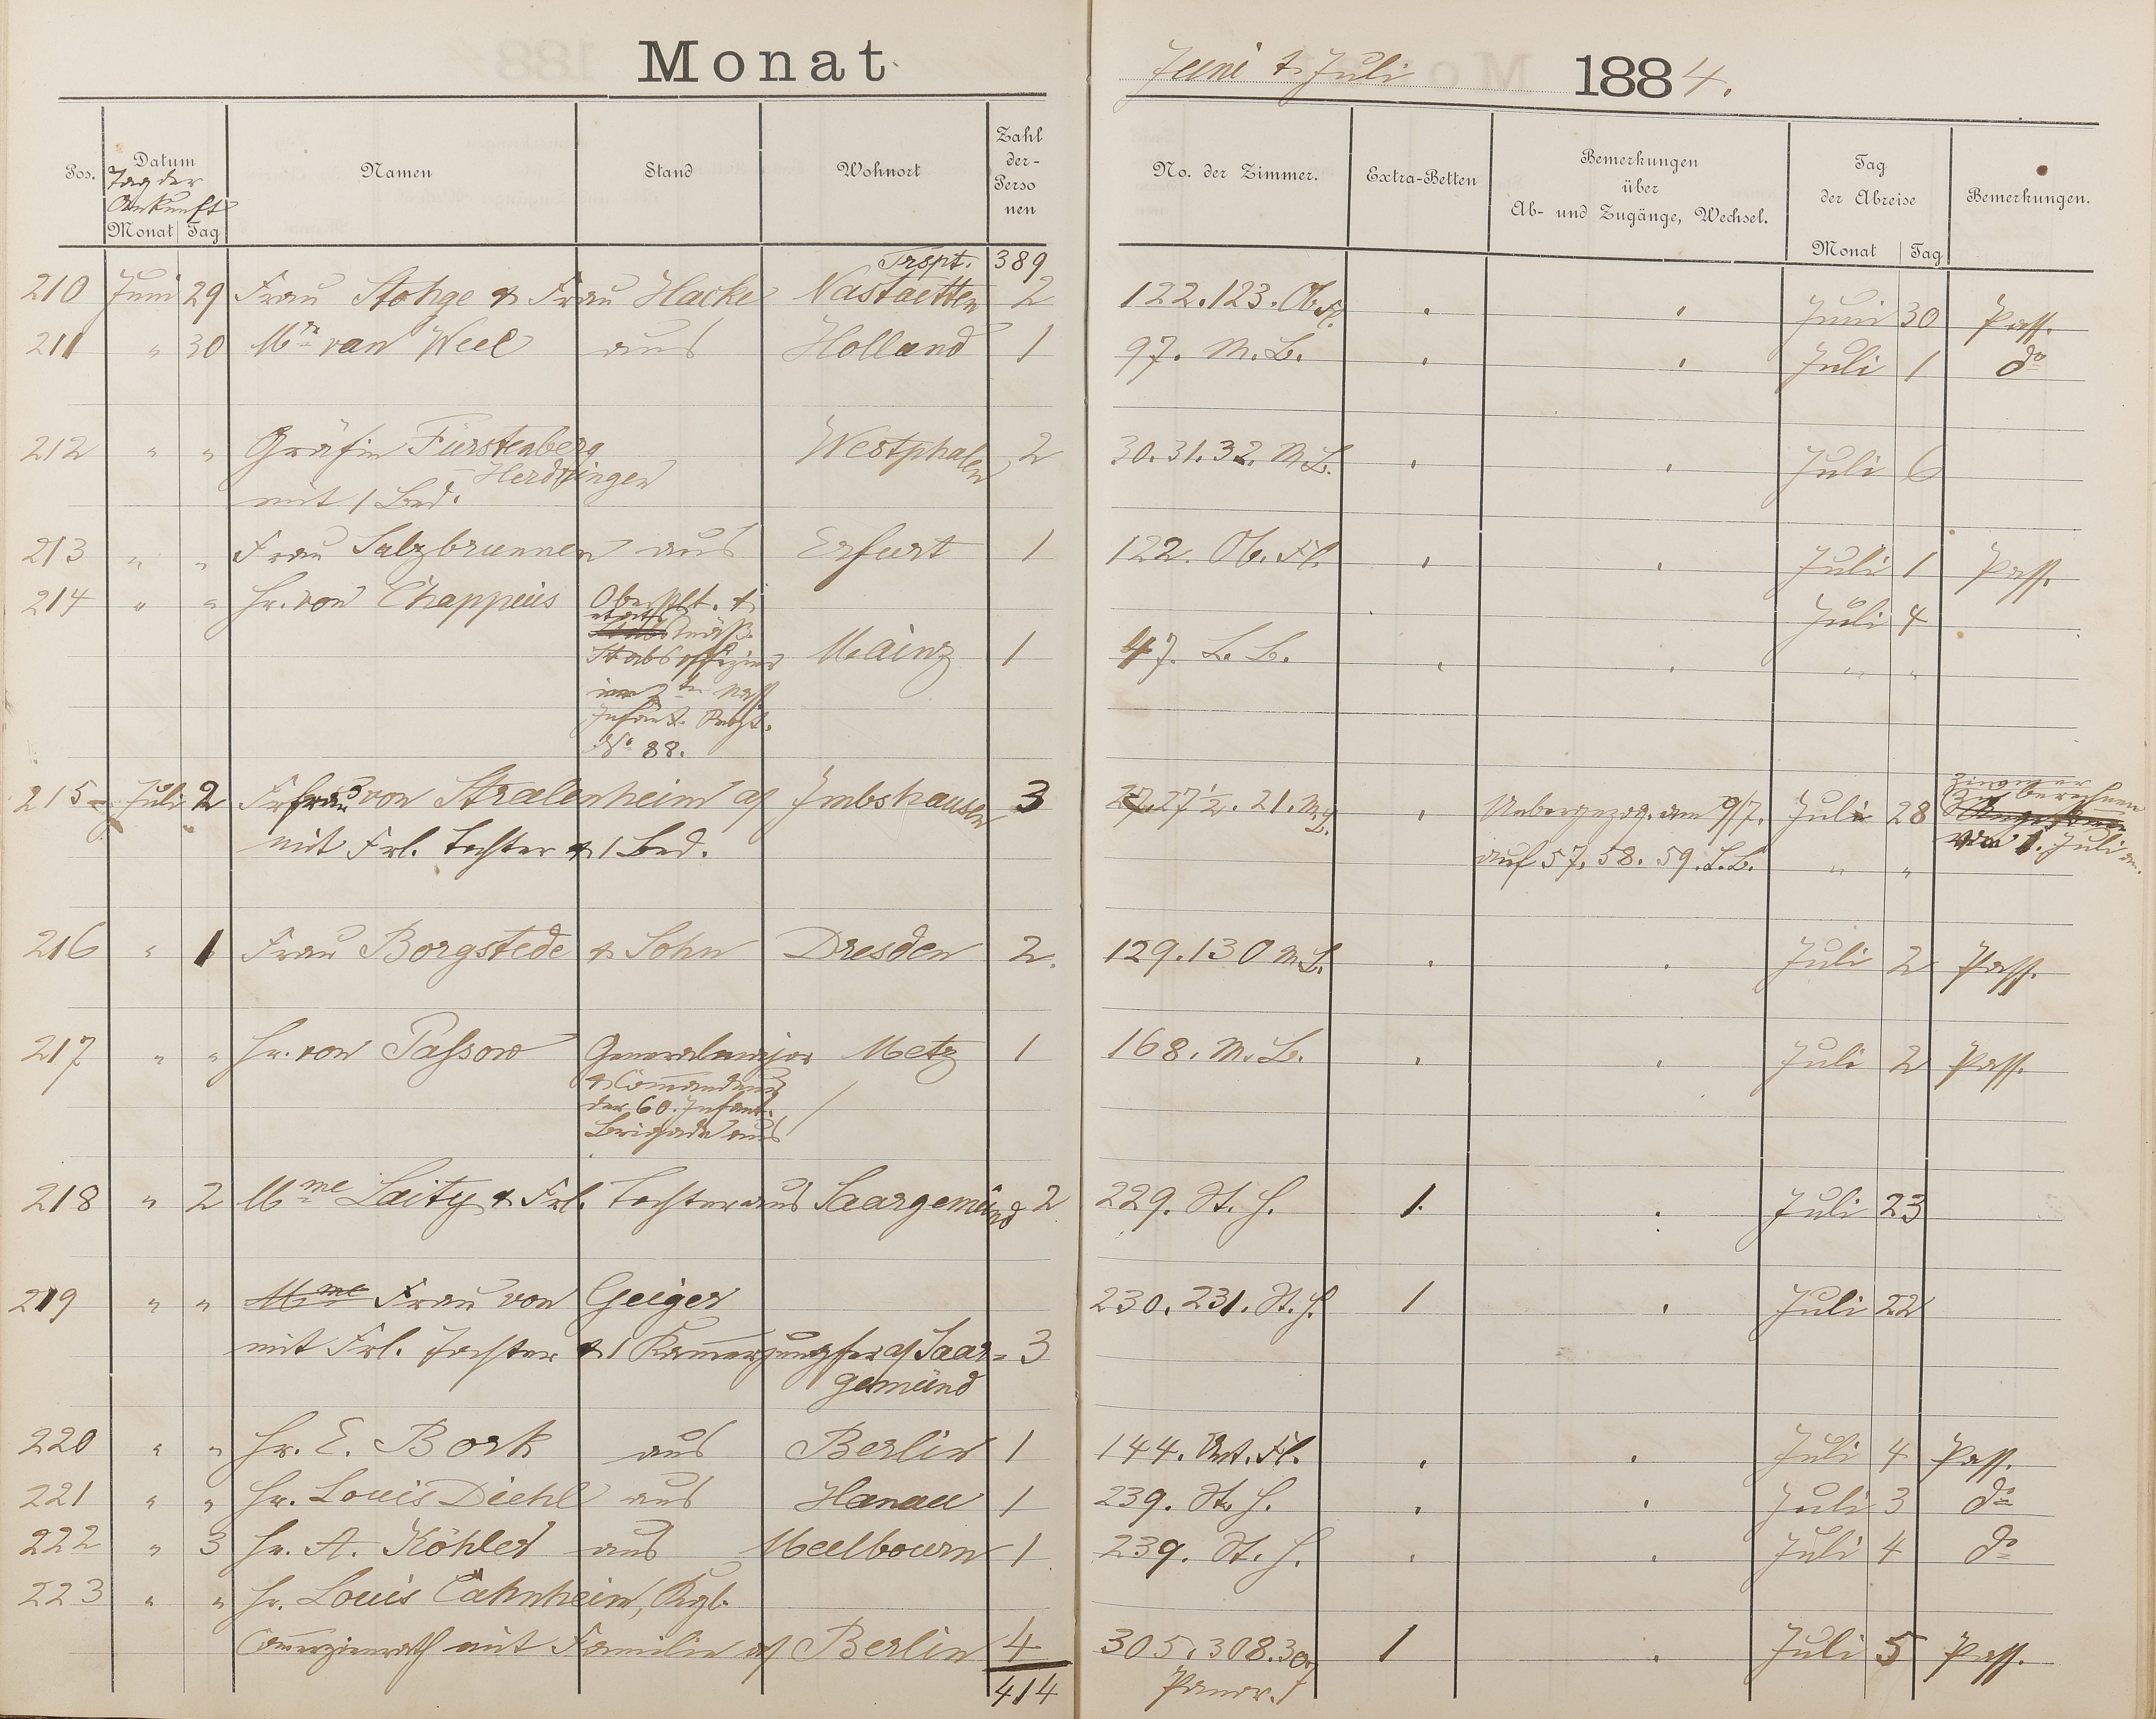 Monat
Juni & Juli 1884.
Pos. Datum Namen Stand Wohnort Zahl der Personen
Tag der Ankunft
Monat Tag
No. der Zimmer. Extra-Betten Bemerkungen über Ab- und Zugänge, Wechsel. Tag der Abreise Bemerkungen.
Monat Tag
Trspt. 389
210 Juni 29 Frau Stohge & Frau Hacke Nastaetten 2 122.123. Ob. Fl. Juni 30 Pass.
211 " 30 Mr van Weel aus Holland 1 97. M.B. Juli 1 do
212 " " Gräfin Fürstenberg Westphalen 2 30.31.32. M.B. Juli 6
-Herdtringen
mit 1 Bed.
213 " " Frau Salzbrunnen aus Erfurt 1 122. Ob. Fl. Juli 1 Pass.
214 " " Hr. von Chappuis Oberstlt. & Juli 4
etatsmäß.
Stabsoffizier Mainz 1 47. L.B. " "
im 2ten Nass
Infant. Regt.
No 88.
215 Juli 2 Frfrau von Stralenheim a/ Imbshausen 3 27.27½.21. M.B. Uebergezog. am 9/7. Juli 28 Zimmer berechnen
mit Frl. Tochter & 1 Bed. auf 57. 58. 59. L.B. " " von 1. Juli an.
216 " 1 Frau Borgstede & Sohn Dresden 2. 129.130 M.B. Juli 2 Pass.
217 " " Hr. von Passow Generalmajor Metz 1 168. M.B. Juli 2 Pass.
& Commandeur
der 60. Infant.
Brigade aus
218 " 2 Mme Laity & Frl. Tochter aus Saargemünd 2 229. St. H. 1. Juli 23
219 " " Mme Frau von Geiger 230. 231. St. H. 1 Juli 22
mit Frl. Tochter & 1 Kammerjungfer a/ Saar- 3
gemünd
220 " " Hr. E. Bork aus Berlin 1 144. Unt. Fl. Juli 4 Pass.
221 " " Hr. Louis Diehl aus Hanau 1 239. St. H. Juli 3 do
222 " 3 Hr. A. Köhler aus Meelbourn 1 239. St. H. Juli 4 do
223 " " Hr. Louis Cahnheim, Kgl.
Commerzienrath mit Familie a/ Berlin 4 305. 308. 307 1 Juli 5 Pass.
414 Panor.